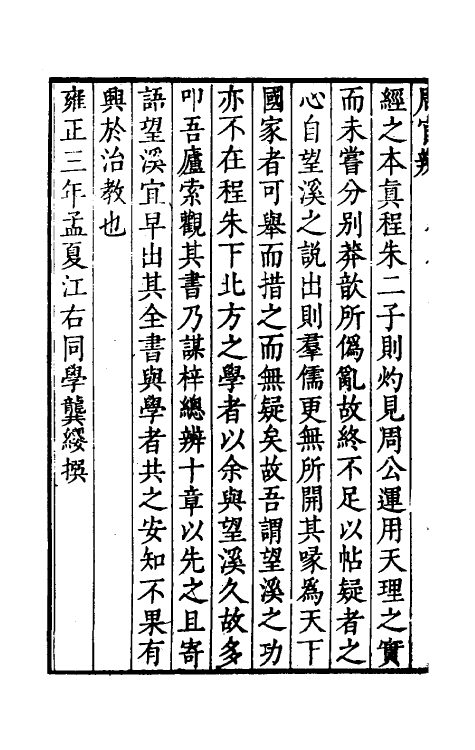 周官辨
經之本真程朱二子則灼見周公運用天理之實
而未嘗分别莽歆所僞亂故終不足以帖疑者之
心自望溪之説出則羣儒更無所開其喙為天下
國家者可舉而措之而無疑矣故吾謂望溪之功
亦不在程朱下北方之學者以余與望溪久故多
叩吾廬索觀其書乃謀梓總辨十章以先之且寄
語望溪宜早出其全書與學者共之安知不果有
興於治教也
雍正三年孟夏江右同學龔纓撰